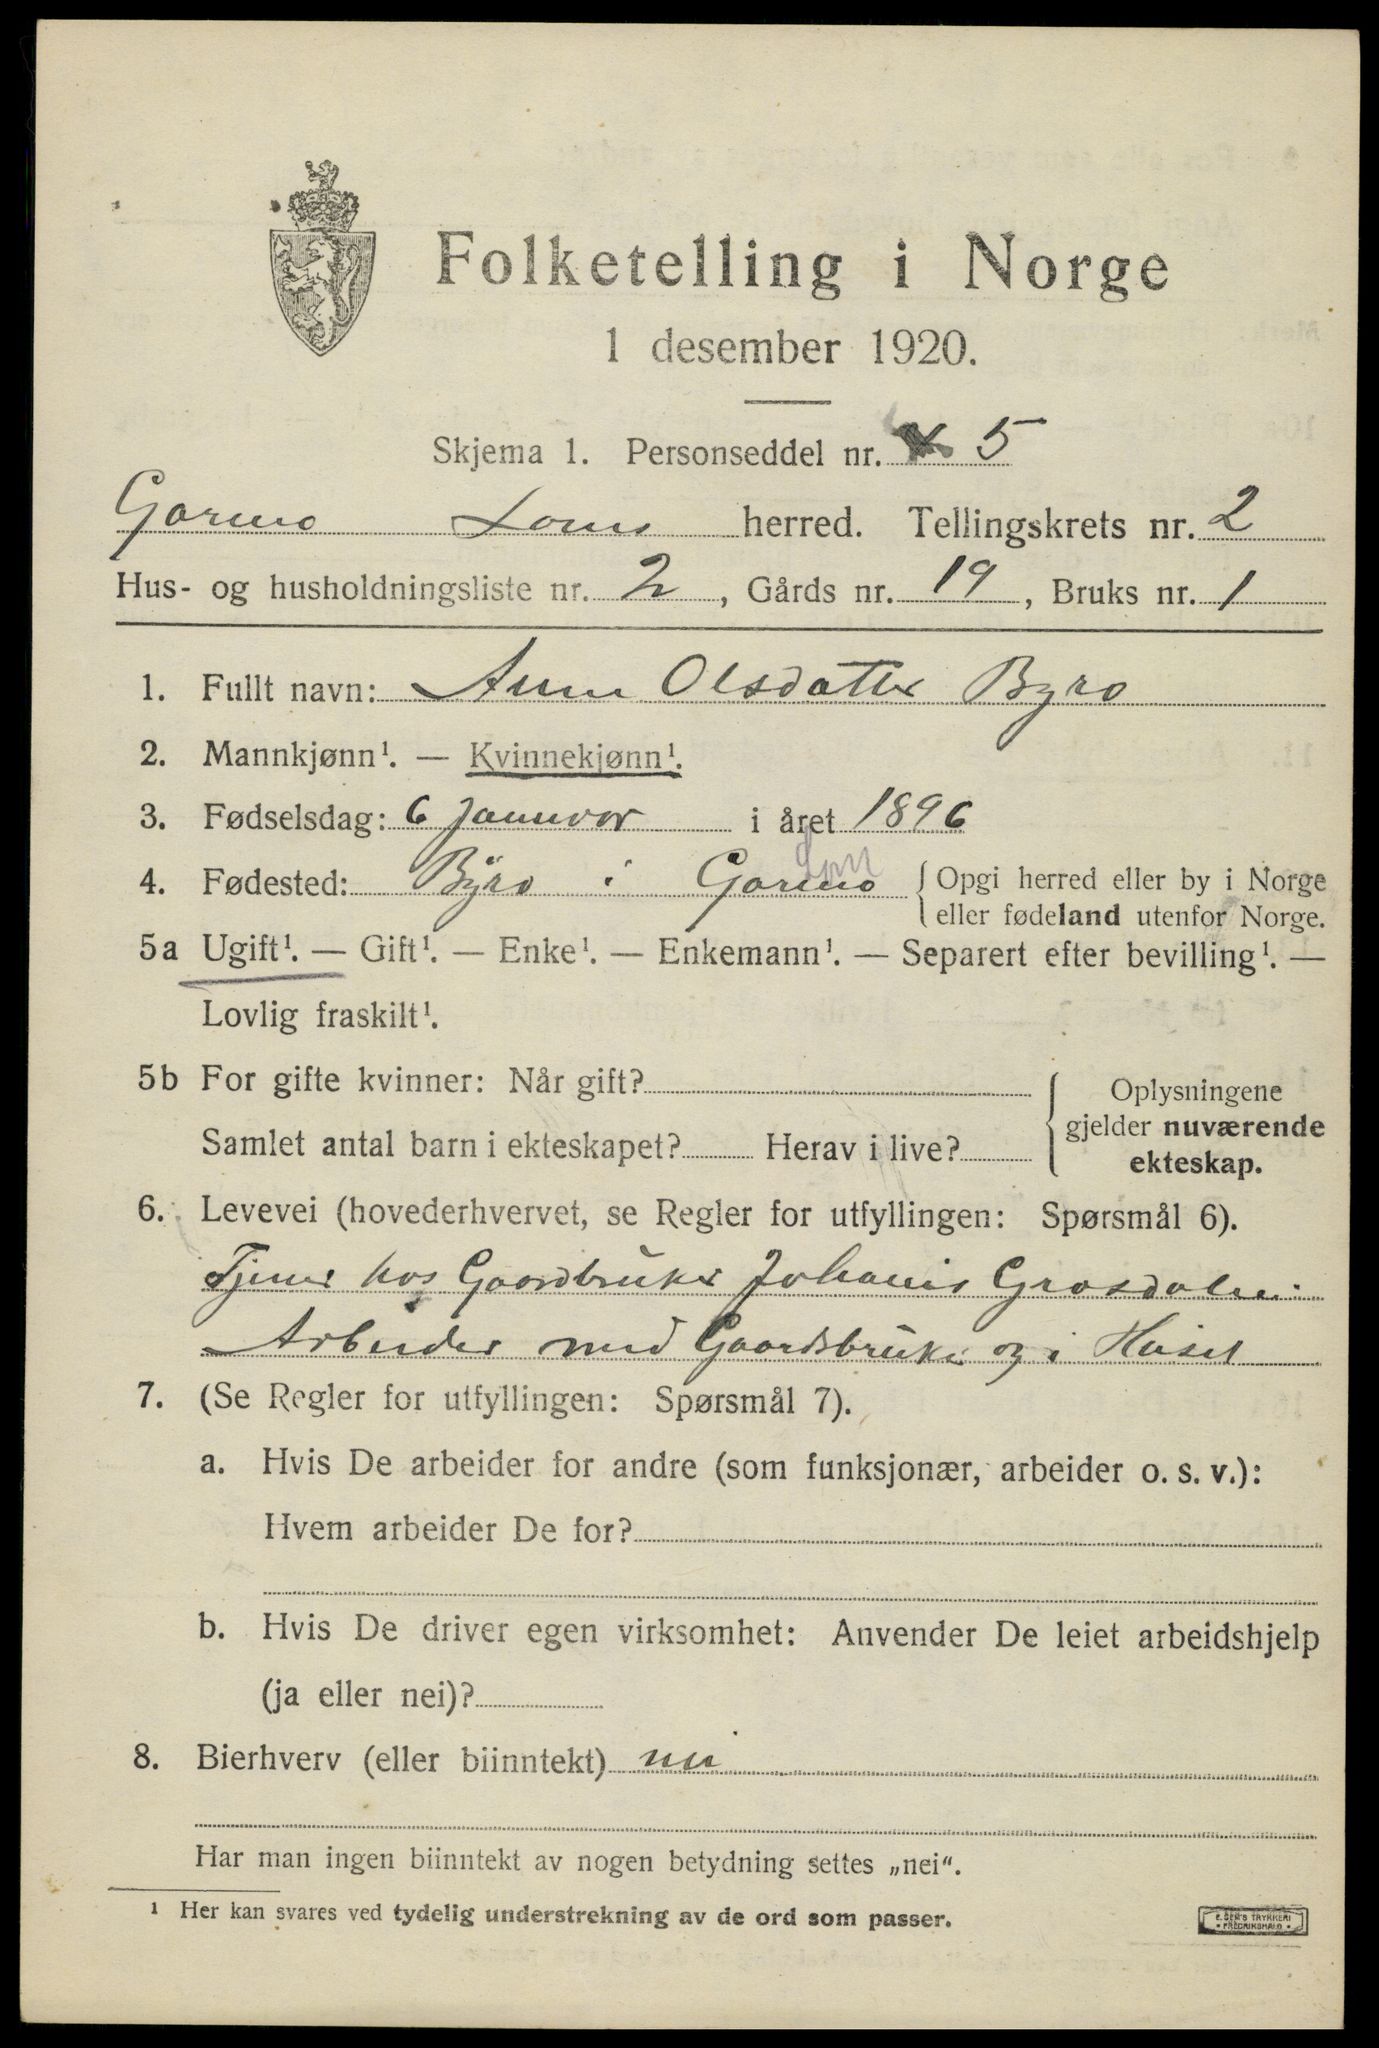 Folketelling i Norge
1 desember 1920.
Skjema 1. Personseddel nr. 5
Garmo Loms herred. Tellingskrets nr. 2
Hus- og husholdningsliste nr. 2, Gårds nr. 19, Bruks nr. 1
1. Fullt navn: Anne Olsdatter Byrø
2. Mannkjønn¹. — Kvinnekjønn¹.
3. Fødselsdag: 6 Januvar i året 1896
Lom
4. Fødested: Byrø i Garmo { Opgi herred eller by i Norge
eller fødeland utenfor Norge.
5a Ugift¹. — Gift¹. — Enke¹. — Enkemann¹. — Separert efter bevilling¹. —
Lovlig fraskilt¹.
5b For gifte kvinner: Når gift?
Samlet antal barn i ekteskapet? Herav i live?
{ Oplysningene
gjelder nuværende
ekteskap.
6. Levevei (hovederhvervet, se Regler for utfyllingen: Spørsmål 6).
Tjener hos Gaardbruker Johanis Grosdalen
Arbeider med Gaardsbruke og i Huset
7. (Se Regler for utfyllingen: Spørsmål 7).
a. Hvis De arbeider for andre (som funksjonær, arbeider o. s. v.):
Hvem arbeider De for?
b. Hvis De driver egen virksomhet: Anvender De leiet arbeidshjelp
(ja eller nei)?
8. Bierhverv (eller biinntekt) nei
Har man ingen biinntekt av nogen betydning settes „nei“.
¹ Her kan svares ved tydelig understrekning av de ord som passer.
E. SEM'S TRYKKERI
• FREDRIKSHALD •